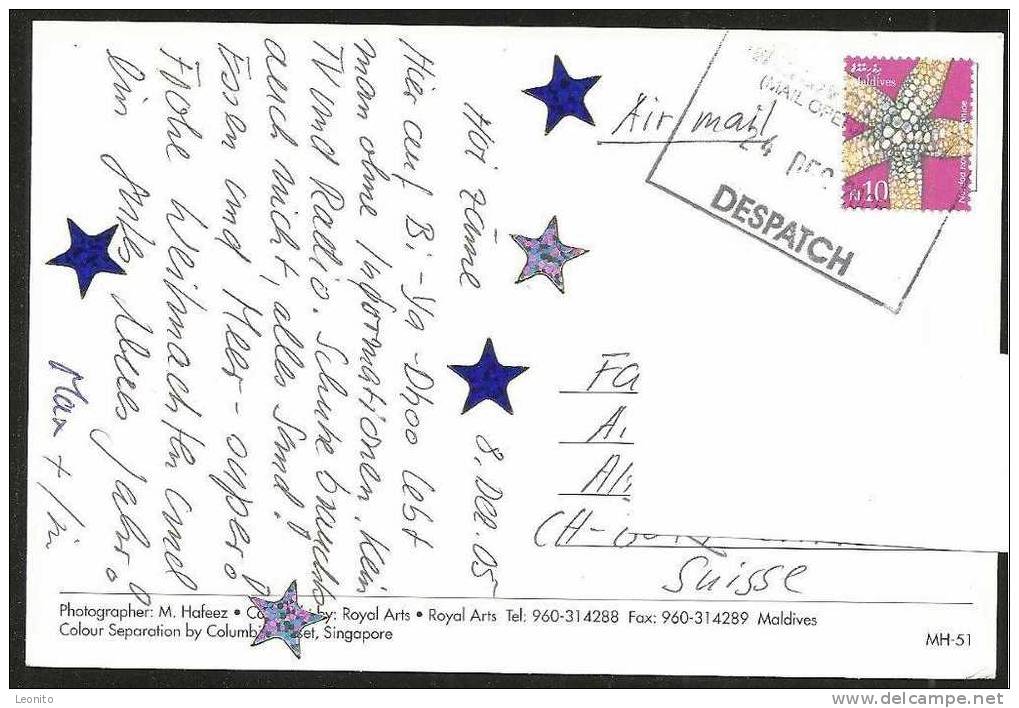 Hoi zäme
8. Dez. 05
Hier auf Bi-ya-Dhoo lebt
man ohne Informationen. Kein
TV und Radio. Schuhe braucht's
auch nicht, alles Sand!
Essen und Meer - super!
Frohe Weihnachten und
ein gutes Neues Jahr!
Max +
Air mail
(MAIL OPE
24 DEC
DESPATCH
Maldives
10
Fa
A
Al
CH-
Suisse
Photographer: M. Hafeez • Co by: Royal Arts • Royal Arts Tel: 960-314288 Fax: 960-314289 Maldives
Colour Separation by Columbi set, Singapore
MH-51
Leonito
www.delcampe.net